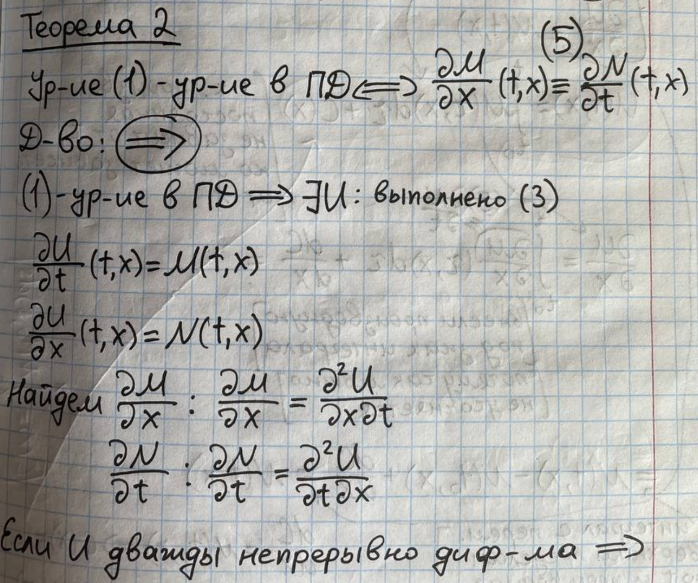 Теорема 2
(5)
Ур-ие (1) - ур-ие в ПД ⟺ ∂M/∂x (t,x) ≡ ∂N/∂t (t,x)
Д-во: ⟹
(1) - ур-ие в ПД ⟹ ∃U: выполнено (3)
∂U/∂t (t,x) = M(t,x)
∂U/∂x (t,x) = N(t,x)
Найдем ∂M/∂x : ∂M/∂x = ∂²U/∂x∂t
∂N/∂t : ∂N/∂t = ∂²U/∂t∂x
Если U дважды непрерывно диф-ма ⟹